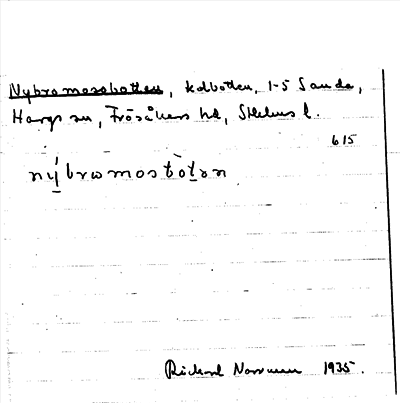 Nybromossbotten, kolbotten, 1-5 Sanda,
Hargs sn, Frösåkers hd, Sthlms l.
615
nýbromosbòtən
Richard Norrman 1935.